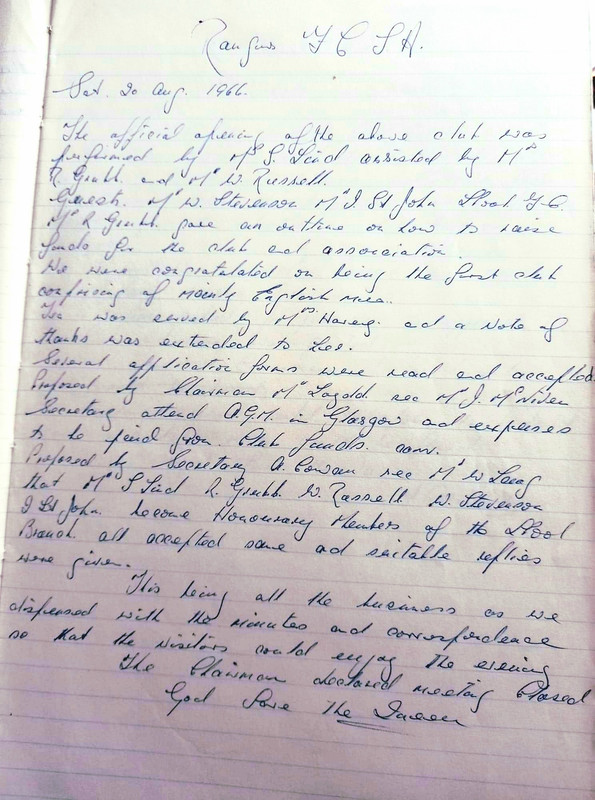 Rangers F C S A.
Sat. 20 Aug. 1966.
The official opening of the above club was
performed by Mr S. Lind assisted by Mr
R. Grubb. and Mr W. Russell.
Guests. Mr W. Stevenson Mr I. St John L'pool F.C.
Mr R Grubb. gave an outline on how to raise
funds for the club and association.
We were congratulated on being the first club
confising of mainly English men.
Tea was served by Mrs and a Vote of
thanks was extended to her.
Several application forms were read and accepted.
Proposed by Chairman Mr sec Mr J. McNiven
Secretary attend A.G.M. in Glasgow and expenses
to be paid from Club funds. carr.
Proposed by Secretary A. Cowan sec Mr W Lang
that Mr S Lind R. Grubb. W. Russell W. Stevenson
I St John. become Honourary Members of the L'pool
Branch. all accepted same and suitable replies
were given.
This being all the business as we
dispensed with the minutes and correspondence
so that the visitors could enjoy the evening
The Chairman declared meeting closed
God Save The Queen